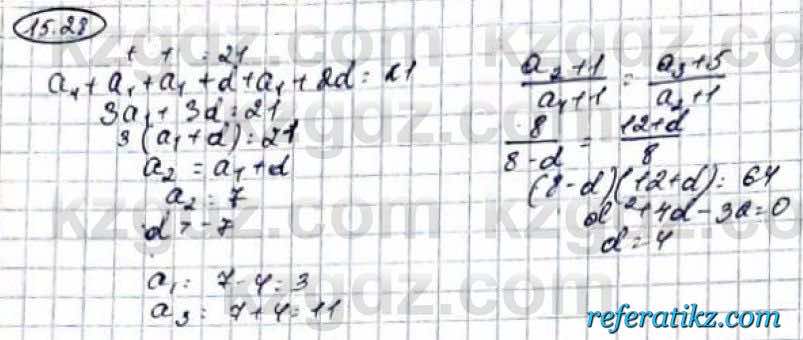 15.28
+ + = 21
a₁ + a₁ + a₁ + d + a₁ + 2d = 21
3a₁ + 3d = 21
3(a₁ + d) = 21
a₂ = a₁ + d
a₂ = 7
d > -7
a₁ = 7 - 4 = 3
a₃ = 7 + 4 = 11
(a₂+1)/(a₁+1) = (a₃+5)/(a₂+1)
8/(8-d) = (12+d)/8
(8-d)(12+d) = 64
d² + 4d - 32 = 0
d = 4
kzgdz.com
referatikz.com